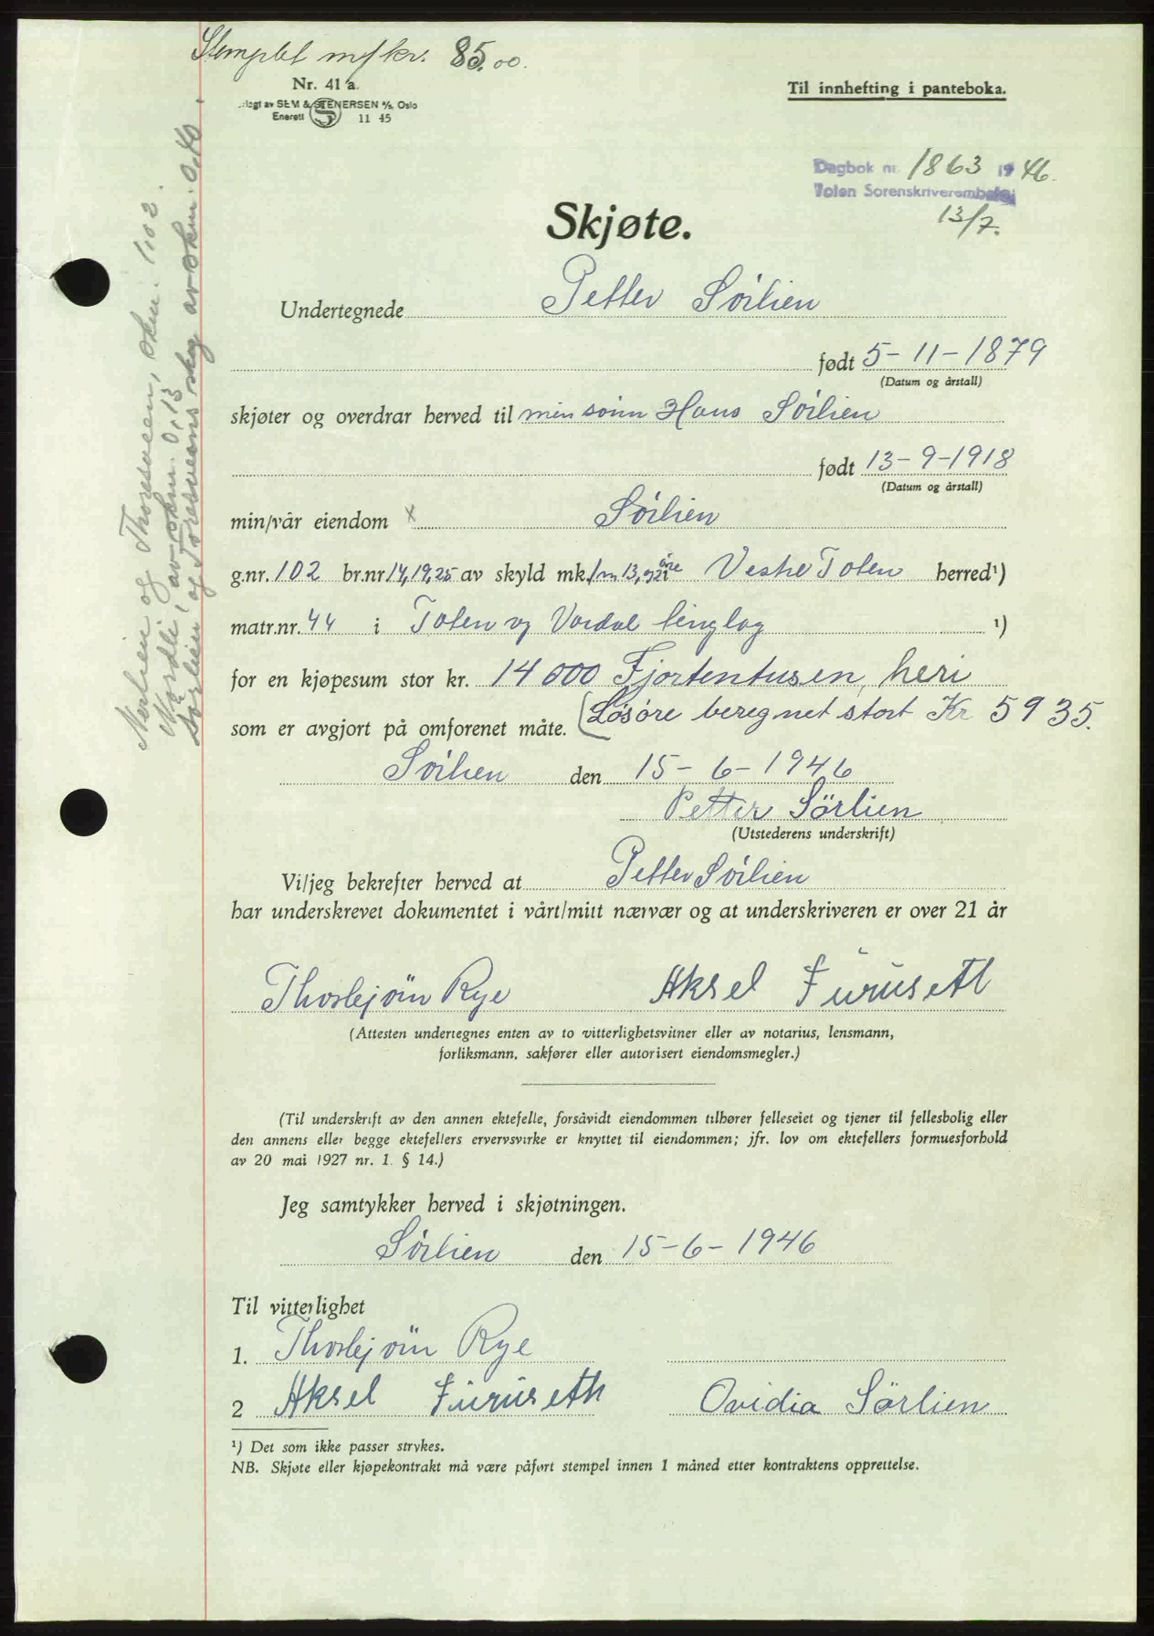 Stemplet m/kr. 85.00.
Nr. 41 a.
SEM & STENERSEN A/S, Oslo
Enerett 11 45
Til innhefting i panteboka.
Dagbok nr. 1863 1946.
Toten Sorenskriverembete
13/7.
Skjøte.
Undertegnede Petter Sörlien
født 5-11-1879
(Datum og årstall)
skjøter og overdrar herved til min sönn Hans Sörlien
født 13-9-1918
(Datum og årstall)
min/vår eiendom x Sörlien
g.nr. 102 br.nr 14,19,25 av skyld mk. 1 m 13, øre Vestre Toten herred¹)
matr.nr. 44 i Toten og Vardal tinglag ¹)
for en kjøpesum stor kr. 14 000 Fjortentusen, heri
som er avgjort på omforenet måte. (Løsöre beregnet stort Kr 5935.
Sörlien den 15-6-1946
Petter Sörlien
(Utstederens underskrift)
Vi/jeg bekrefter herved at Petter Sörlien
har underskrevet dokumentet i vårt/mitt nærvær og at underskriveren er over 21 år
Thorbjörn Rye Aksel Furuseth
(Attesten undertegnes enten av to vitterlighetsvitner eller av notarius, lensmann,
forliksmann, sakfører eller autorisert eiendomsmegler.)
(Til underskrift av den annen ektefelle, forsåvidt eiendommen tilhører felleseiet og tjener til fellesbolig eller
den annens eller begge ektefellers ervervsvirke er knyttet til eiendommen; jfr. lov om ektefellers formuesforhold
av 20 mai 1927 nr. 1. § 14.)
Jeg samtykker herved i skjøtningen.
Sörlien den 15-6-1946
Til vitterlighet
1. Thorbjörn Rye
2 Aksel Furuseth Ovidia Sörlien
¹) Det som ikke passer strykes.
NB. Skjøte eller kjøpekontrakt må være påført stempel innen 1 måned etter kontraktens opprettelse.
Nerlien og Thoresveen, skm. 1.02.
Nordli, av skm. 0,13
Sorlien og Toresveens skog av skm. 0.40.